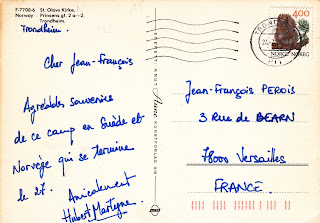 F-7708-6 St. Olavs Kirke.
Norway Prinsens gt. 2 a-2,
Trondheim.
Trondheim.
Cher Jean-François
Agréables souvenirs
de ce camp en Suède et
Norvège qui se termine
le 27. Amicalement
Hubert
ENERETT KNUT Aune KUNSTFORLAG AS
400
NORGE NOREG
Jean-François PEROIS
3 Rue de BEARN
78000 Versailles
FRANCE.